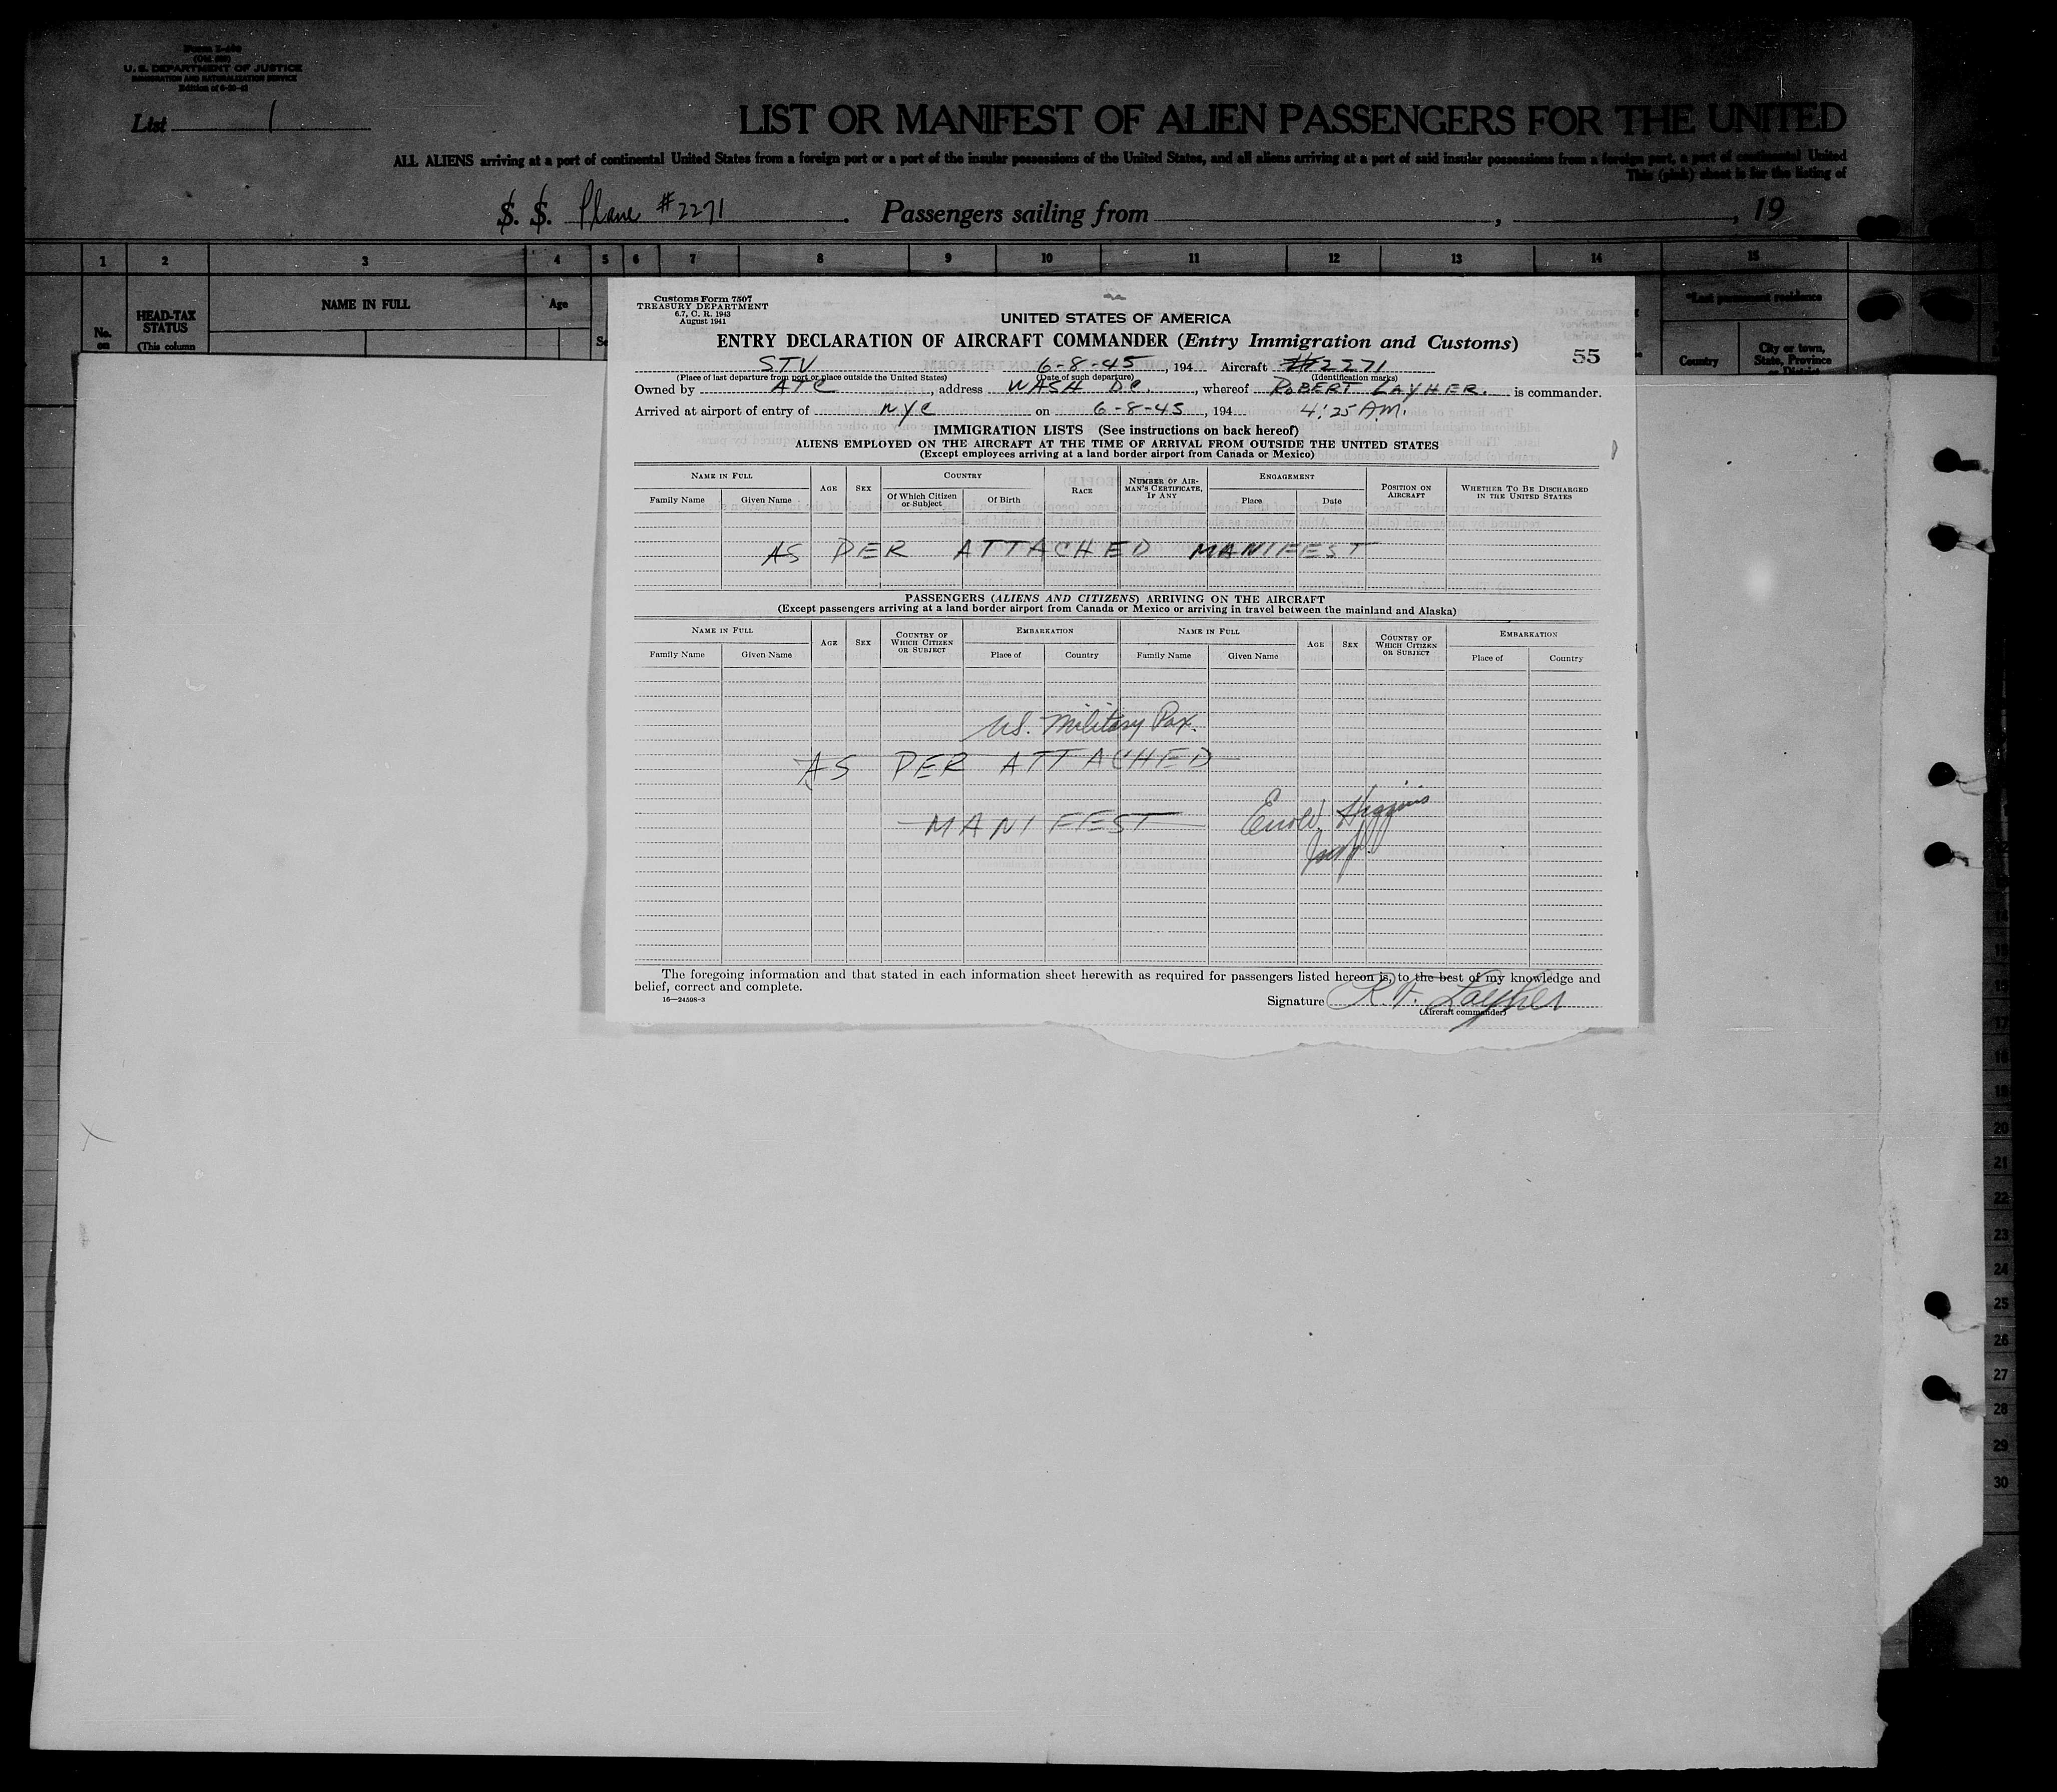 Form I-466
(Old 500)
U. S. DEPARTMENT OF JUSTICE
IMMIGRATION AND NATURALIZATION SERVICE
List 1
LIST OR MANIFEST OF ALIEN PASSENGERS FOR THE UNITED
ALL ALIENS arriving at a port of continental United States from a foreign port or a port of the insular possessions of the United States, and all aliens arriving at a port of said insular possessions from a foreign port, a port of continental United
This (pink) sheet is for the listing of
S. S. Plane #2271. Passengers sailing from , , 19
1 2 3 4 5 6 7 8 9 10 11 12 13 14 15
No. on
HEAD-TAX STATUS
(This column
NAME IN FULL
Age
Se
*Last permanent residence
Country
City or town, State, Province
Customs Form 7507
TREASURY DEPARTMENT
6.7, C. R. 1943
August 1941
UNITED STATES OF AMERICA
ENTRY DECLARATION OF AIRCRAFT COMMANDER (Entry Immigration and Customs)
55
STV 6-8-45, 194 Aircraft #2271
(Place of last departure from port or place outside the United States) (Date of such departure) (Identification marks)
Owned by ATC, address WASH D.C., whereof ROBERT LAYHER. is commander.
Arrived at airport of entry of NYC on 6-8-45, 194 4:25 A.M.
IMMIGRATION LISTS (See instructions on back hereof)
ALIENS EMPLOYED ON THE AIRCRAFT AT THE TIME OF ARRIVAL FROM OUTSIDE THE UNITED STATES
(Except employees arriving at a land border airport from Canada or Mexico)
NAME IN FULL
Family Name Given Name
AGE SEX
COUNTRY
Of Which Citizen or Subject Of Birth
RACE
NUMBER OF AIRMAN'S CERTIFICATE, IF ANY
ENGAGEMENT
Place Date
POSITION ON AIRCRAFT
WHETHER TO BE DISCHARGED IN THE UNITED STATES
AS PER ATTACHED MANIFEST
PASSENGERS (ALIENS AND CITIZENS) ARRIVING ON THE AIRCRAFT
(Except passengers arriving at a land border airport from Canada or Mexico or arriving in travel between the mainland and Alaska)
NAME IN FULL
Family Name Given Name
AGE SEX
COUNTRY OF WHICH CITIZEN OR SUBJECT
EMBARKATION
Place of Country
NAME IN FULL
Family Name Given Name
AGE SEX
COUNTRY OF WHICH CITIZEN OR SUBJECT
EMBARKATION
Place of Country
US. Military Pax.
AS PER ATTACHED
MANIFEST
Higgins
Insp.
The foregoing information and that stated in each information sheet herewith as required for passengers listed hereon is, to the best of my knowledge and
belief, correct and complete.
16—24598-3
Signature R. F. Layher
(Aircraft commander)
17
18
19
20
21
22
23
24
25
26
27
28
29
30